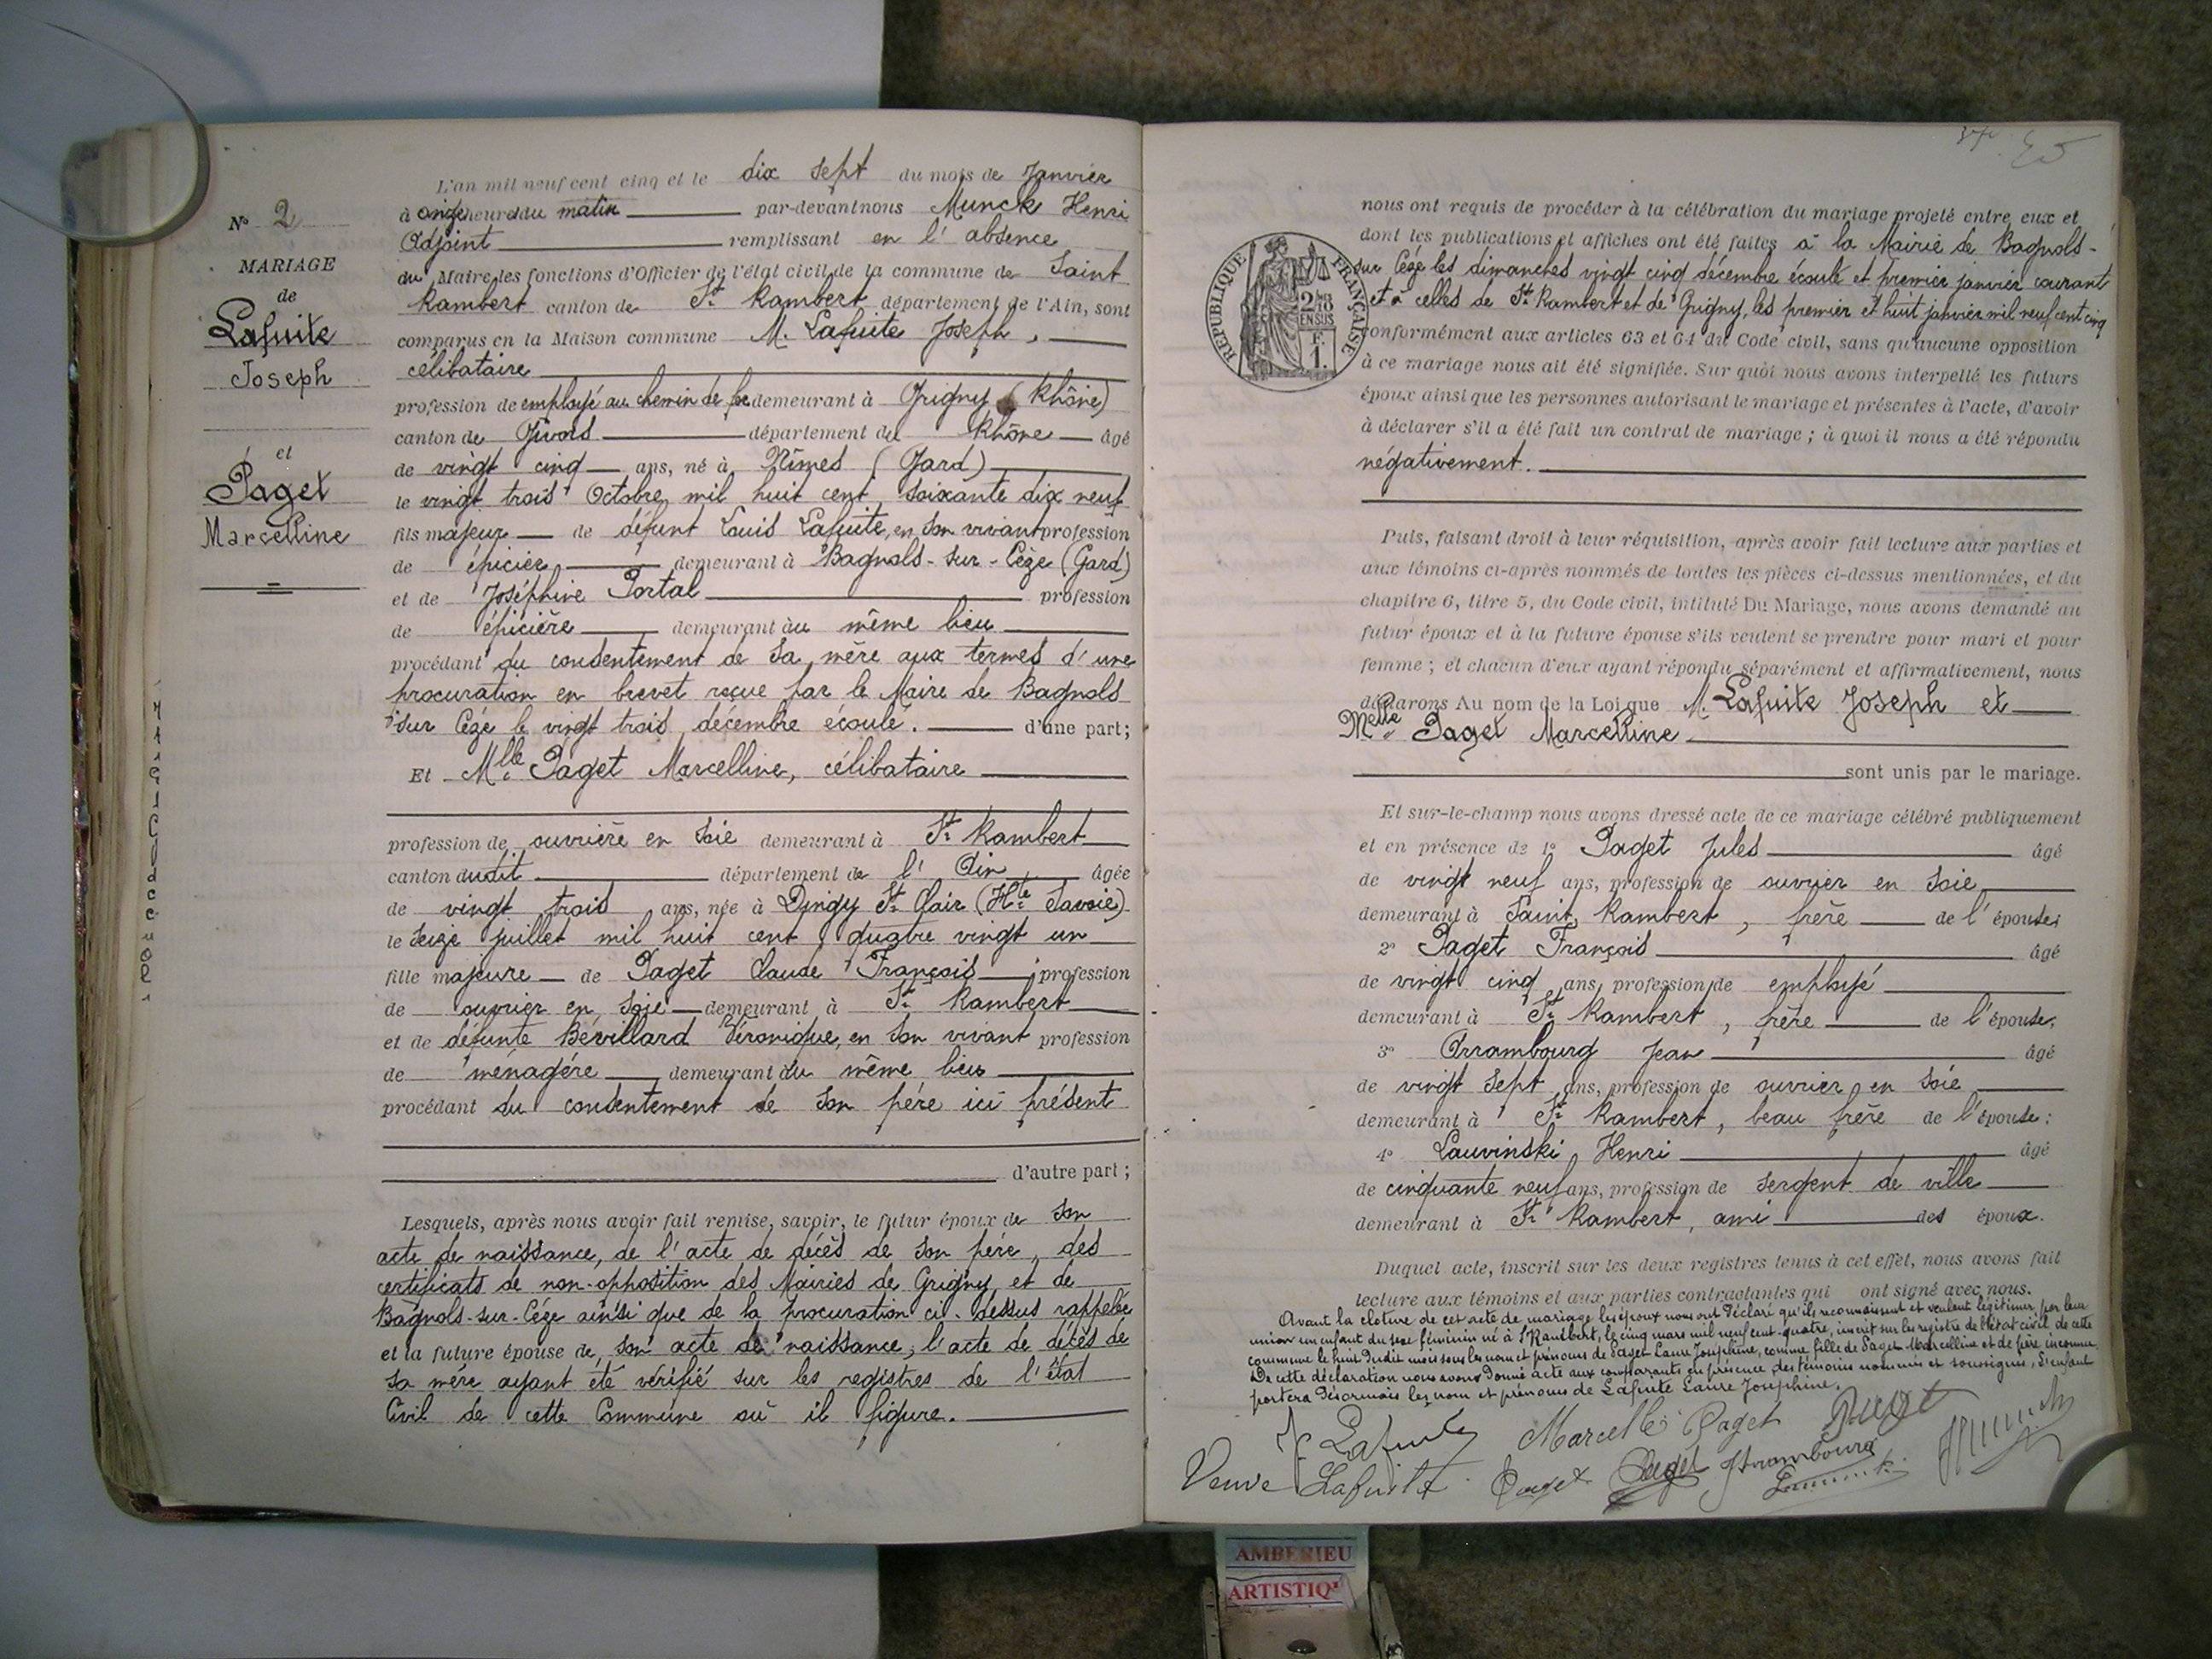 N° 2
MARIAGE
de
Lafuite
Joseph
et
Paget
Marcelline
L'an mil neuf cent cinq et le dix sept du mois de Janvier
à onze heures du matin par-devant nous Munck Henri
Adjoint remplissant en l'absence
du Maire les fonctions d'Officier de l'état civil de la commune de Saint
Rambert canton de St Rambert département de l'Ain, sont
comparus en la Maison commune M. Lafuite Joseph,
célibataire
profession de employé au chemin de fer demeurant à Grigny (Rhône)
canton de Givors département du Rhône âgé
de vingt cinq ans, né à Nîmes (Gard)
le vingt trois Octobre mil huit cent soixante dix neuf
fils majeur de défunt Louis Lafuite, en son vivant profession
de épicier demeurant à Bagnols-sur-Cèze (Gard)
et de Joséphine Portal profession
de épicière demeurant au même lieu
procédant du consentement de sa mère aux termes d'une
procuration en brevet reçue par le Maire de Bagnols
sur Cèze le vingt trois décembre écoulé. d'une part;
Et Mlle Paget Marcelline, célibataire
profession de ouvrière en soie demeurant à St Rambert
canton dudit département de l'Ain âgée
de vingt trois ans, née à Dingy St Clair (Hte Savoie)
le seize juillet mil huit cent quatre vingt un
fille majeure de Paget Claude François profession
de ouvrier en soie demeurant à St Rambert
et de défunte Bévillard Véronique, en son vivant profession
de ménagére demeurant du même lieu
procédant du consentement de son père ici présent
d'autre part;
Lesquels, après nous avoir fait remise, savoir, le futur époux de son
acte de naissance, de l'acte de décès de son père, des
certificats de non-opposition des Mairies de Grigny et de
Bagnols-sur-Cèze ainsi que de la procuration ci-dessus rappelée
et la future épouse de son acte de naissance, l'acte de décès de
sa mère ayant été vérifié sur les registres de l'état
Civil de cette Commune où il figure.
RÉPUBLIQUE FRANÇAISE
EN SUS
F.
1.
nous ont requis de procéder à la célébration du mariage projeté entre eux et
dont les publications et affiches ont été faites à la Mairie de Bagnols-
sur Cèze les dimanches vingt cinq décembre écoulé et premier janvier courant
et à celles de St Rambert et de Grigny, les premier et huit janvier mil neuf cent cinq
conformément aux articles 63 et 64 du Code civil, sans qu'aucune opposition
à ce mariage nous ait été signifiée. Sur quoi nous avons interpellé les futurs
époux ainsi que les personnes autorisant le mariage et présentes à l'acte, d'avoir
à déclarer s'il a été fait un contrat de mariage; à quoi il nous a été répondu
négativement.
Puis, faisant droit à leur réquisition, après avoir fait lecture aux parties et
aux témoins ci-après nommés de toutes les pièces ci-dessus mentionnées, et du
chapitre 6, titre 5, du Code civil, intitulé Du Mariage, nous avons demandé au
futur époux et à la future épouse s'ils veulent se prendre pour mari et pour
femme; et chacun d'eux ayant répondu séparément et affirmativement, nous
déclarons Au nom de la Loi que M. Lafuite Joseph et
Melle Paget Marcelline
sont unis par le mariage.
Et sur-le-champ nous avons dressé acte de ce mariage célébré publiquement
et en présence de 1° Paget Jules âgé
de vingt neuf ans, profession de ouvrier en soie
demeurant à Saint Rambert, frère de l'épouse;
2° Paget François âgé
de vingt cinq ans, profession de employé
demeurant à St Rambert, frère de l'épouse;
3° Arrambourg Jean âgé
de vingt sept ans, profession de ouvrier en soie
demeurant à St Rambert, beau frère de l'épouse;
4° Lauvinski Henri âgé
de cinquante neuf ans, profession de sergent de ville
demeurant à St Rambert, ami des époux.
Duquel acte, inscrit sur les deux registres tenus à cet effet, nous avons fait
lecture aux témoins et aux parties contractantes qui ont signé avec nous.
Avant la cloture de cet acte de mariage les époux nous ont déclaré qu'ils reconnaissent et veulent légitimer par leur
union un enfant du sexe féminin né à St Rambert, le cinq mars mil neuf cent quatre, inscrit sur les registre de l'état civil de cette
commune le huit dudit mois sous les nom et prénoms de Paget Laure Joséphine, comme fille de Paget Marcelline et de père inconnu.
De cette déclaration nous avons donné acte aux comparants en présence des témoins nommés et soussignés, l'enfant
portera désormais les nom et prénoms de Lafuite Laure Joséphine.
J Lafuite Marcelle Paget Paget
Veuve Lafuite Paget Paget Arrambourg
AMBERIEU
ARTISTIQ